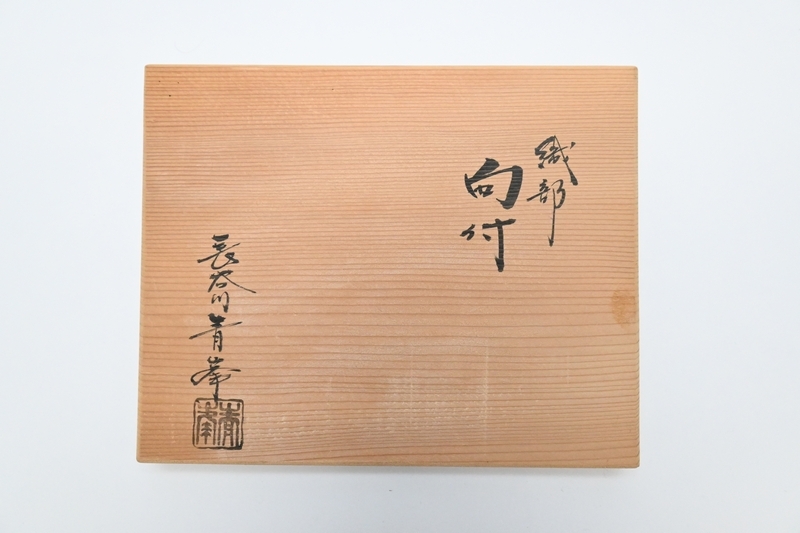 織部
向付
長谷川青峯
青峯